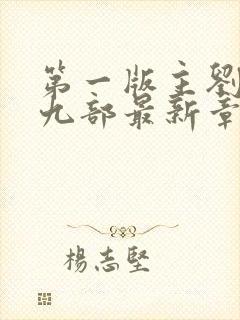 第一版主劉
九部最新章
楊志堅